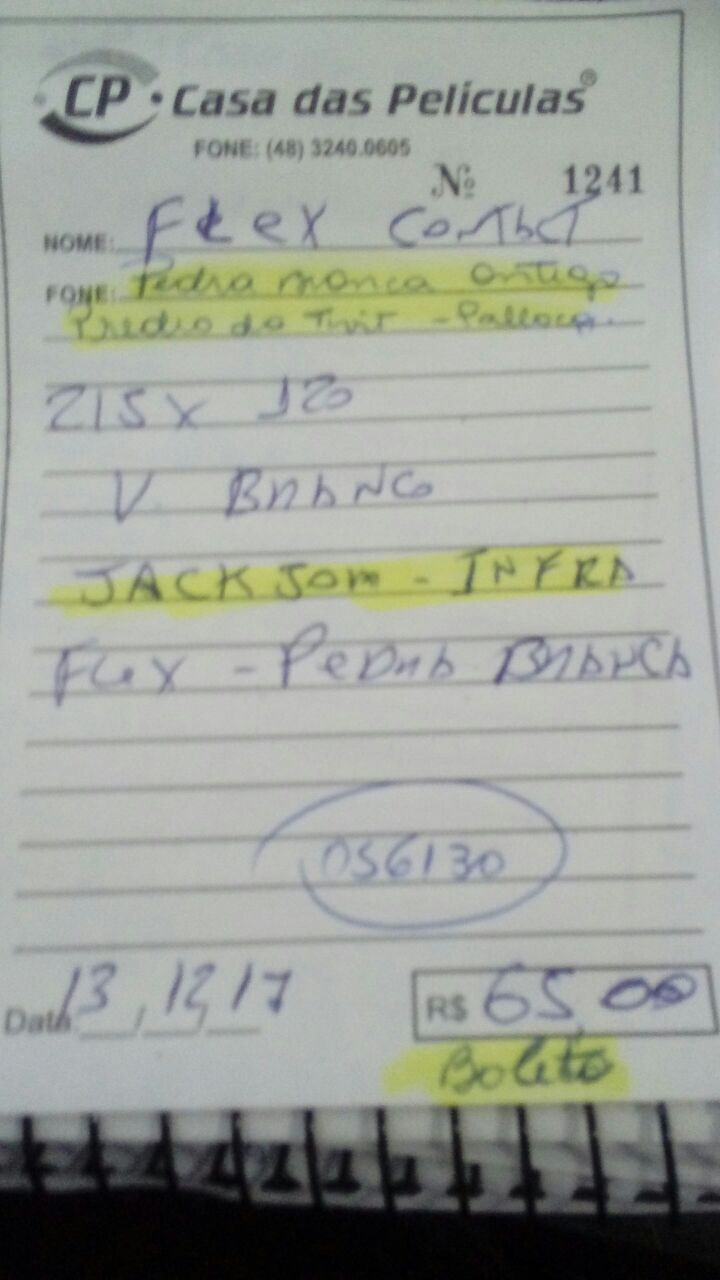 CP · Casa das Películas®
FONE: (48) 3240.0605
Nº 1241
NOME: FLEX CONTACT
FONE: Pedra Branca antigo
Predio do Tivit - Palhoça.
215 X 120
V BRANCO
JACKSOM - INFRA
FLEX - PEDRA BRANCA
OS6130
Data 13, 12, 17
R$ 65,00
Boleto